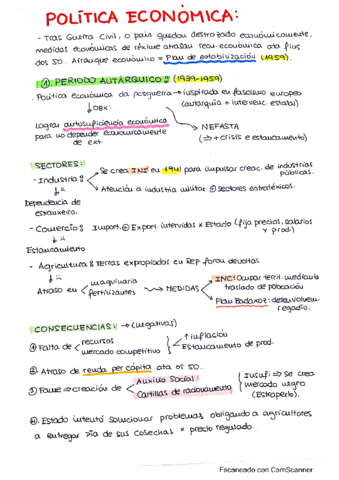 POLÍTICA ECONÓMICA:
- Tras Guerra Civil, o pais quedou destrozado económicamente,
medidas económicas do réxime atrasan recu. económica ata fins
dos 50. Arranque económico = Plan de estabilización (1959)
① PERIODO AUTÁRQUICO: (1939-1959)
Política económica da posguerra → inspirada en fascismo europeo
(autarquía + intervenc. estatal)
↓ OBX:
Lograr autosuficiencia económica
para no depender economicamente
de ext.
→ NEFASTA
(→ + crisis e estancamento)
SECTORES:
- Industria:
Se crea INI en 1941 para impulsar creac. de industrias
públicas.
Atención a industria militar e sectores estratéxicos.
Dependencia de
estranxeiro.
- Comercio: Import. e Export. intervidas x Estado (fija precios, salarios
y prod.)
Estancamento
- Agricultura: Terras expropiadas en Rep. foron devoltas
Atraso en
maquinaria
fertilizantes
→ MEDIDAS
INC: Ocupar territ. mediante
traslado de poboación
Plan Badaxoz: desenvolvem.
regadío.
CONSECUENCIAS: → (Negativas)
① Falta de
recursos
mercado competitivo
↑ inflación
Estancamento de prod.
② Atraso de renda per cápita ata os 50.
③ Fame → creación de
Auxilio Social
Cartillas de racionamento
Insufi → Se crea
mercado negro
(Estraperlo).
④ Estado intentó solucionar problemas obligando a agricultores
a entregar de sus cosechas x precio regulado.
Escaneado con CamScanner